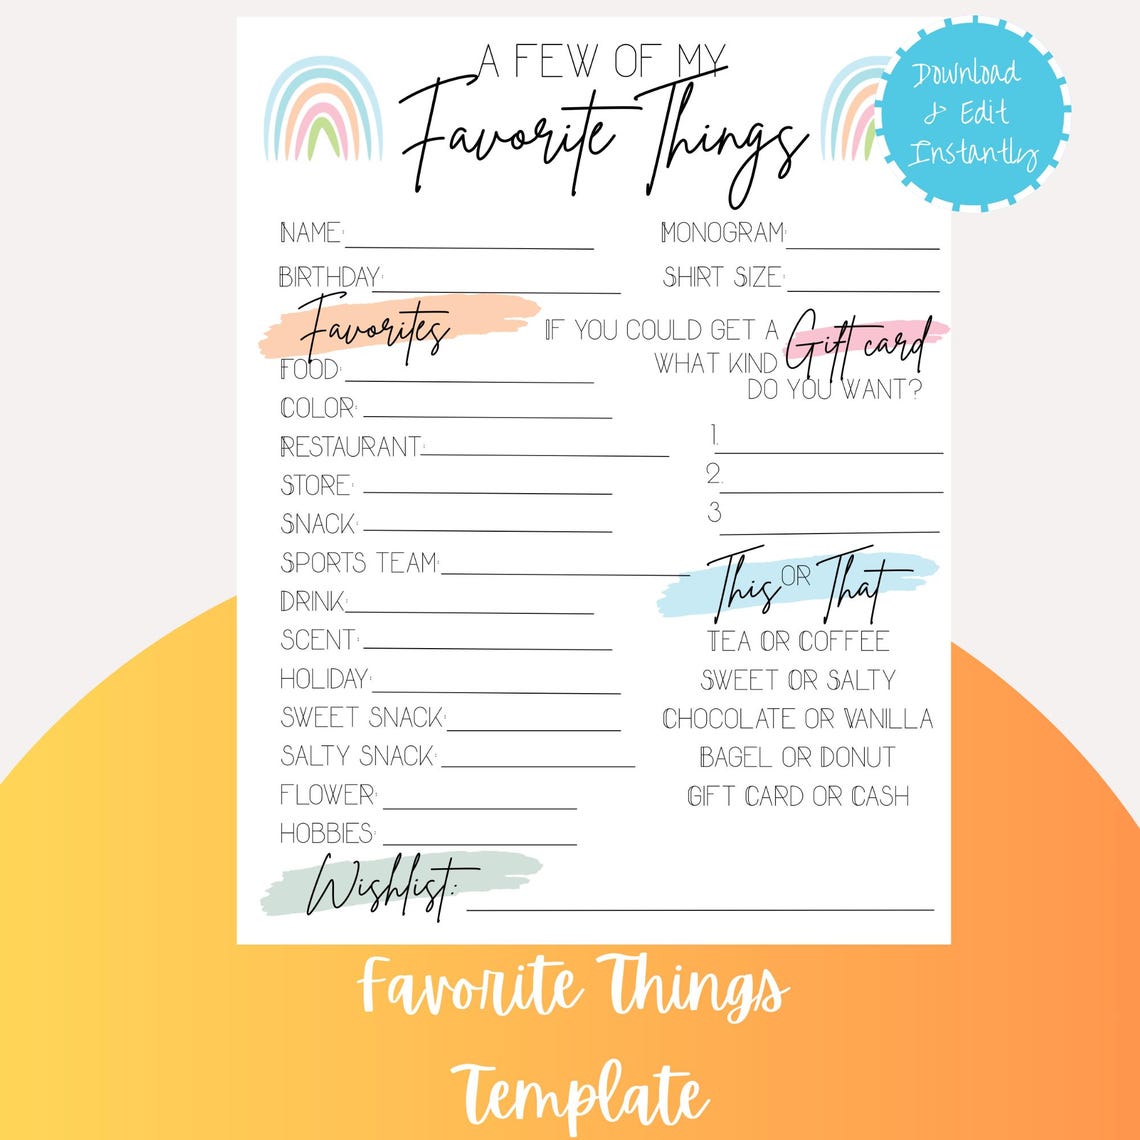 A FEW OF MY
Favorite Things
Download
& Edit
Instantly
NAME:
MONOGRAM:
BIRTHDAY:
SHIRT SIZE:
Favorites
FOOD:
COLOR:
RESTAURANT:
STORE:
SNACK:
SPORTS TEAM:
DRINK:
SCENT:
HOLIDAY:
SWEET SNACK:
SALTY SNACK:
FLOWER:
HOBBIES:
IF YOU COULD GET A Gift card
WHAT KIND
DO YOU WANT?
1.
2.
3
This OR That
TEA OR COFFEE
SWEET OR SALTY
CHOCOLATE OR VANILLA
BAGEL OR DONUT
GIFT CARD OR CASH
Wishlist:
Favorite Things
Template